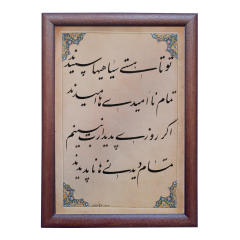 تو تا هستی سیاهیها سپیدند
تمام ناامیدی‌ها امیدند
اگر روزی پدیدارت نبینم
تمام دیدنی‌ها ناپدیدند